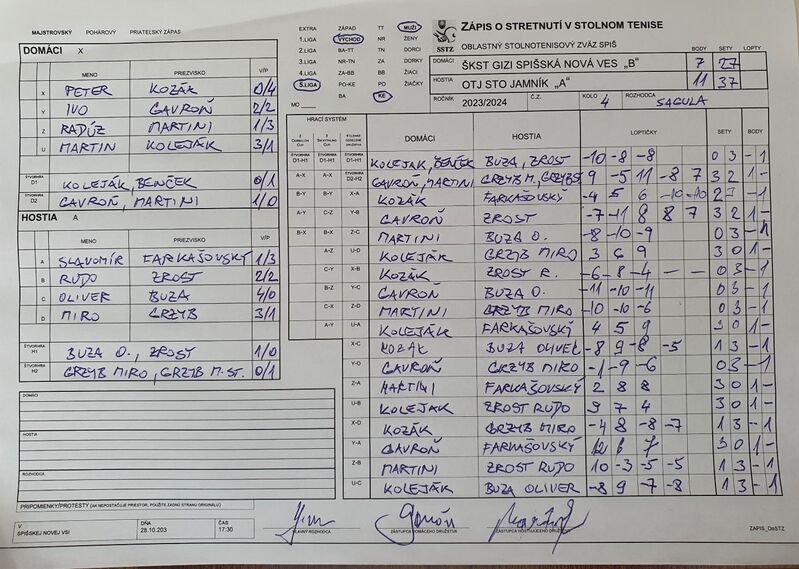 MAJSTROVSKÝ POHÁROVÝ PRIATEĽSKÝ ZÁPAS
EXTRA ZÁPAD TT MUŽI
1.LIGA VÝCHOD NR ŽENY
2.LIGA BA-TT TN DORCI
3.LIGA NR-TN ZA DORKY
4.LIGA ZA-BB BB ŽIACI
5.LIGA PO-KE PO ŽIAČKY
MO BA KE
SSTZ
ZÁPIS O STRETNUTÍ V STOLNOM TENISE
OBLASTNÝ STOLNOTENISOVÝ ZVÄZ SPIŠ
BODY SETY LOPTY
DOMÁCI ŠKST GIZI SPIŠSKÁ NOVÁ VES „B" 7 27
HOSTIA OTJ STO JAMNÍK „A" 11 37
ROČNÍK 2023/2024 Č.Z. KOLO 4 ROZHODCA SAGULA
DOMÁCI X
MENO PRIEZVISKO V/P
X PETER KOZÁK 0/4
Y IVO GAVROŇ 2/2
Z RADÚZ MARTINI 1/3
U MARTIN KOLEJÁK 3/1
ŠTVORHRA D1 KOLEJÁK, BENČEK 0/1
ŠTVORHRA D2 GAVROŇ, MARTINI 1/0
HOSTIA A
MENO PRIEZVISKO V/P
A SLAVOMÍR FARKAŠOVSKÝ 1/3
B RUDO ZROST 2/2
C OLIVER BUZA 4/0
D MIRO GRZYB 3/1
ŠTVORHRA H1 BUZA O., ZROST 1/0
ŠTVORHRA H2 GRZYB MIRO, GRZYB M. ST. 0/1
HRACÍ SYSTÉM
DOMÁCI HOSTIA LOPTIČKY SETY BODY
D1-H1 D1-H1 D1-H1 KOLEJAK, BENČEK BUZA, ZROST -10 -8 -8 0 3 - 1
A-X A-X D2-H2 GAVROŇ, MARTINI GRZYB M., GRZYB ST 9 -5 11 -8 7 3 2 1 -
B-Y B-Y X-A KOZÁK FARKAŠOVSKÝ -4 5 6 -10 -10 2 3 - 1
A-Y C-Z Y-B GAVROŇ ZROST -7 -11 8 8 7 3 2 1 -
B-X B-X Z-C MARTINI BUZA O. -8 -10 -9 0 3 - 1
A-Z U-D KOLEJÁK GRZYB MIRO 3 6 9 3 0 1 -
C-Y X-B KOZÁK ZROST R. -6 -8 -4 — — 0 3 - 1
B-Z Y-C GAVROŇ BUZA O. -11 -10 -11 0 3 - 1
C-X Z-D MARTINI GRZYB MIRO -10 -10 -6 0 3 - 1
A-Y U-A KOLEJÁK FARKAŠOVSKÝ 4 5 9 3 0 1 -
X-C KOZÁK BUZA OLIVER -8 9 -8 -5 1 3 - 1
Y-D GAVROŇ GRZYB MIRO -1 -9 -6 0 3 - 1
Z-A MARTINI FARKAŠOVSKÝ 2 8 8 3 0 1 -
U-B KOLEJAK ZROST RUDO 9 7 4 3 0 1 -
X-D KOZÁK GRZYB MIRO -4 8 -8 -7 1 3 - 1
Y-A GAVROŇ FARKAŠOVSKÝ 12 6 7 3 0 1 -
Z-B MARTINI ZROST RUDO 10 -3 -5 -5 1 3 - 1
U-C KOLEJÁK BUZA OLIVER -8 9 -7 -8 1 3 - 1
DOMÁCI
HOSTIA
ROZHODCA
PRIPOMIENKY/PROTESTY (AK NEPOSTAČUJE PRIESTOR, POUŽITE ZADNÚ STRANU ORIGINÁLU)
V SPIŠSKEJ NOVEJ VSI DŇA 28.10.203 ČAS 17:30
HLAVNÝ ROZHODCA ZÁSTUPCA DOMÁCEHO DRUŽSTVA ZÁSTUPCA HOSŤUJÚCEHO DRUŽSTVA
ZAPIS_OsSTZ